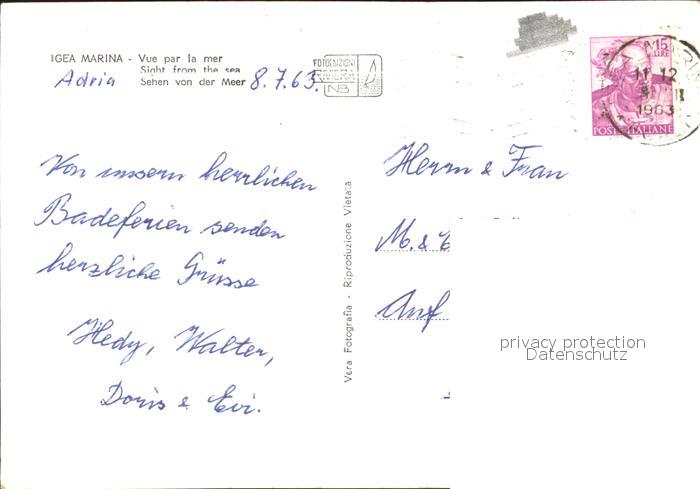 IGEA MARINA - Vue par la mer
Sight from the sea
Adria Sehen von der Meer 8.7.63.
FOTOEDIZIONI
RIVIERA
NB
15
LIRE
11-12
1963
POSTE ITALIANE
Von unsern herrlichen
Badeferien senden
herzliche Grüsse
Hedy, Walter,
Doris & Evi.
Vera Fotografia - Riproduzione Vietata
Herrn & Frau
M. & E
Auf
privacy protection
Datenschutz